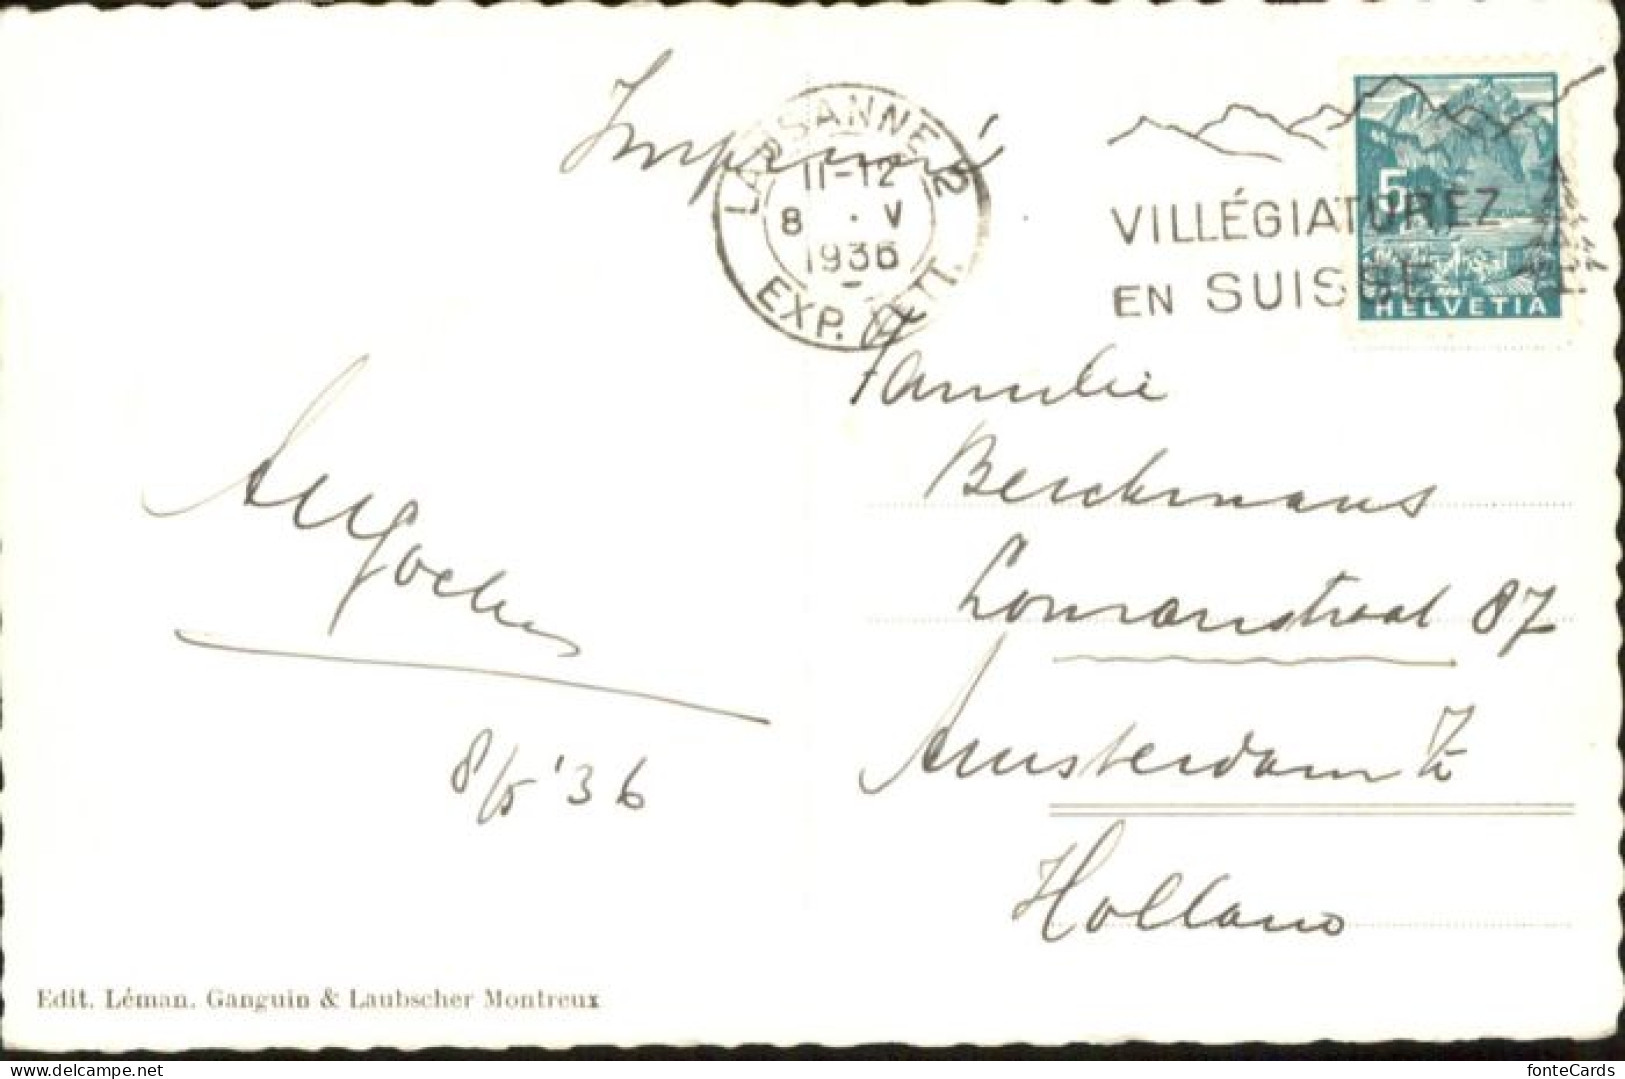 Imprimé
LAUSANNE 2
11-12
8 . V
1936
EXP. LETT.
VILLÉGIATUREZ
EN SUISSE
5
HELVETIA
Familie
Berckmans
Lomanstraat 87
Amsterdam Z
Holland
8/5 '36
Edit. Léman. Ganguin & Laubscher Montreux
delcampe.net
fonteCards